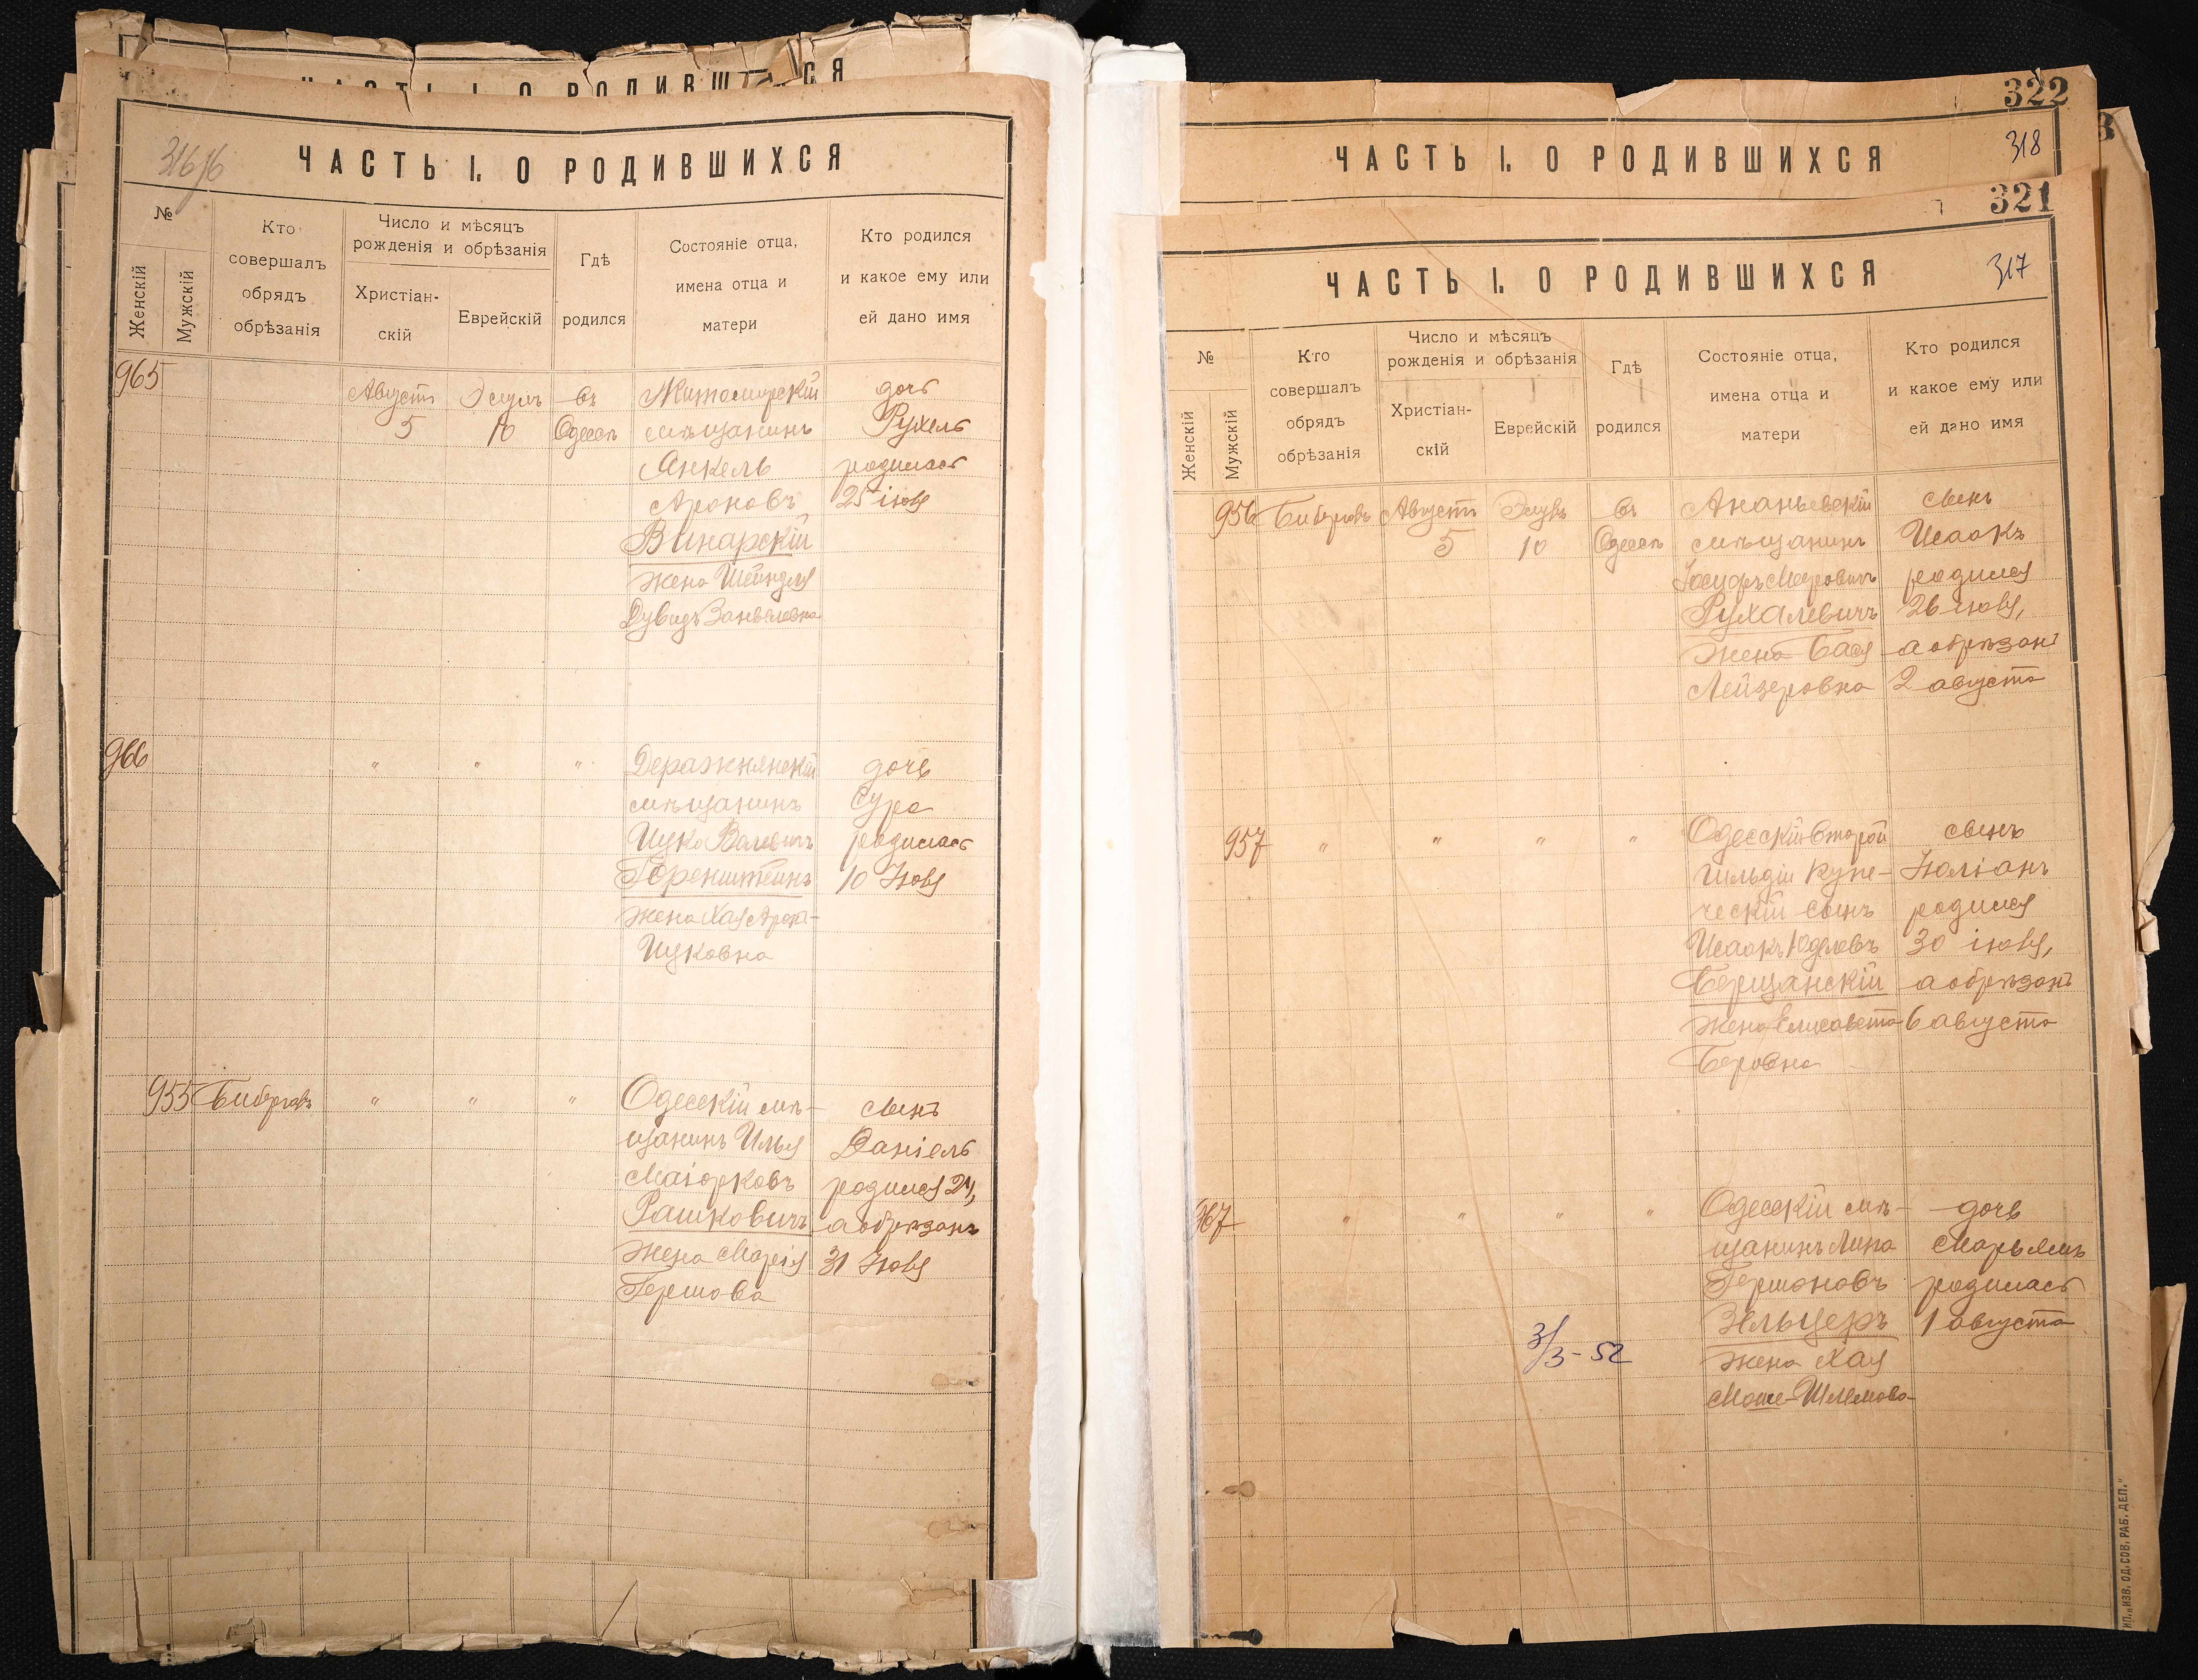 ЧАСТЬ I. О РОДИВШИХСЯ
316
ЧАСТЬ I. О РОДИВШИХСЯ
№
Женскій
Мужскій
Кто
совершалъ
обрядъ
обрѣзанія
Число и мѣсяцъ
рожденія и обрѣзанія
Христіан-
скій
Еврейскій
Гдѣ
родился
Состояніе отца,
имена отца и
матери
Кто родился
и какое ему или
ей дано имя
965
Августъ
5
Элулъ
10
въ
Одессѣ
Житомирскій
мѣщанинъ
Янкель
Ароновъ
Винарскій
жена Шейндля
Дувидъ-Занвелевна
дочь
Рухель
родилась
25 іюля
966
" " "
Деражнянскій
мѣщанинъ
Ицко Валевичъ
Горенштейнъ
жена Хая Арона-
Ицковна
дочь
Сура
родилась
10 Іюля
955
" " "
Одесскій мѣ-
щанинъ Илья
Маіорковъ
Рашковичъ
жена Марія
Гершова
сынъ
Даніель
родился 24,
а обрѣзанъ
31 Іюля
322
318
ЧАСТЬ I. О РОДИВШИХСЯ
321
317
ЧАСТЬ I. О РОДИВШИХСЯ
№
Женскій
Мужскій
Кто
совершалъ
обрядъ
обрѣзанія
Число и мѣсяцъ
рожденія и обрѣзанія
Христіан-
скій
Еврейскій
Гдѣ
родился
Состояніе отца,
имена отца и
матери
Кто родился
и какое ему или
ей дано имя
956
Августъ
5
Элулъ
10
въ
Одессѣ
Ананьевскій
мѣщанинъ
Іосифъ Меровичъ
Рухалевичъ
жена Бася
Лейзеровна
сынъ
Исаакъ
родился
26 іюля,
а обрѣзанъ
2 августа
957
" " " "
Одесскій второй
гильдіи купе-
ческій сынъ
Исаакъ Юделевъ
Берщанскій
жена Елисавета
Беровна
сынъ
Юліанъ
родился
30 іюля,
а обрѣзанъ
6 августа
967
" " " "
Одесскій мѣ-
щанинъ Липа
Гершоновъ
Зельцеръ
жена Хая
Моше-Шлемова
дочь
Марьямъ
родилась
1 августа
3/3-52
ИП. „ИЗВ. ОД. СОВ. РАБ. ДЕП."